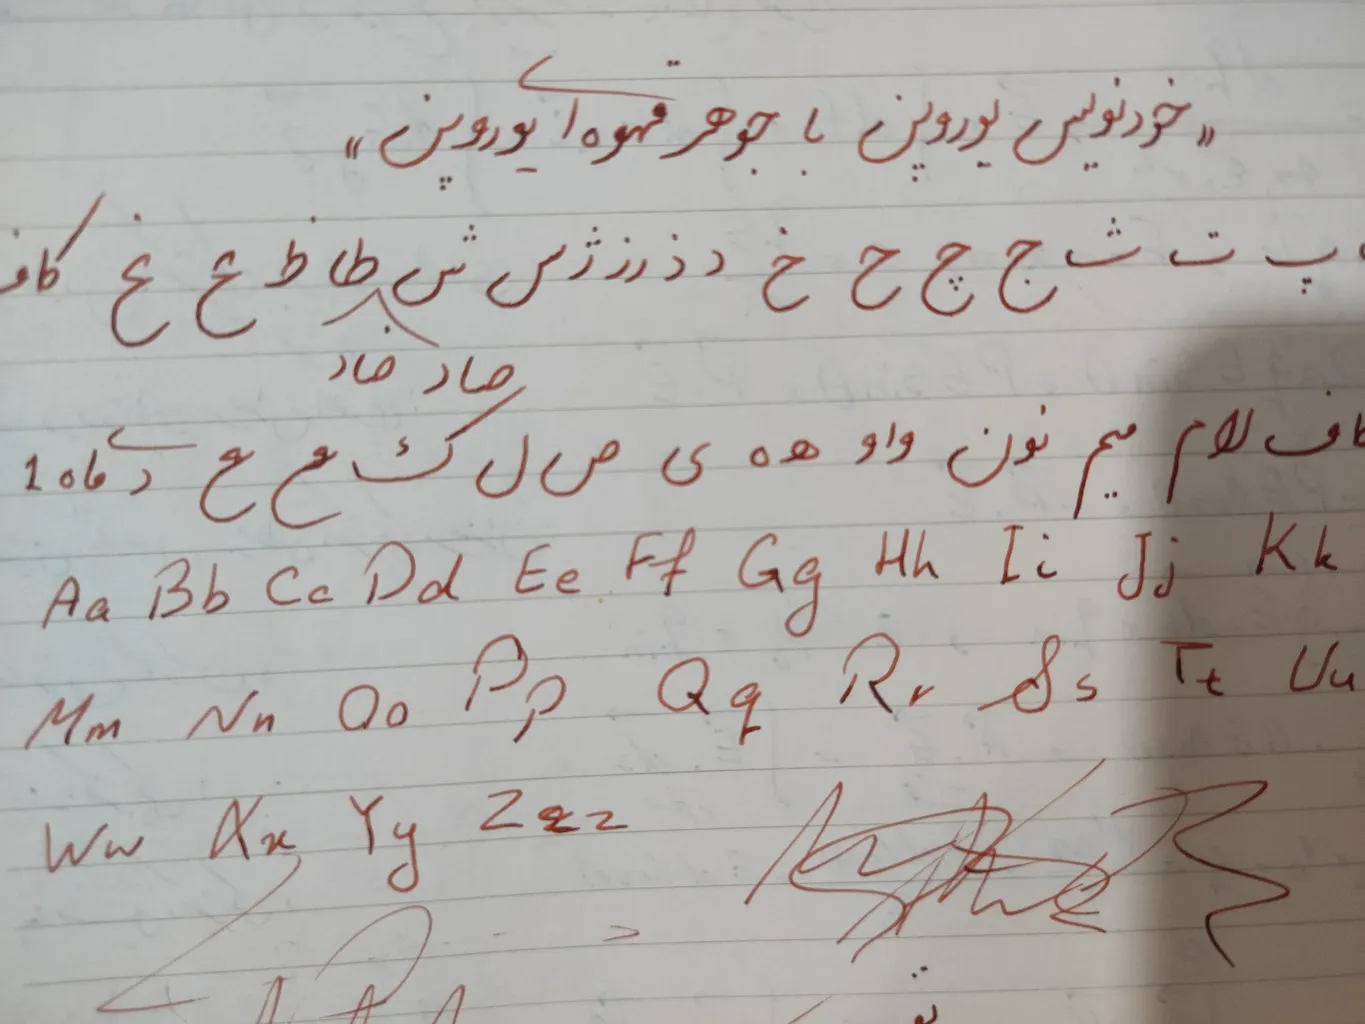 «خودنویس یوروپن با جوهر قهوه‌ای یوروپن»
پ ت ث ج چ ح خ د ذ ر ز ژ س ش طا ظ ع غ کاف
صاد ضاد
کاف لام میم نون واو هه ی ص ل ک ح ح
Aa Bb Cc Dd Ee Ff Gg Hh Ii Jj Kk
Mm Nn Oo Pp Qq Rr Ss Tt Uu
Ww Xx Yy Zzz